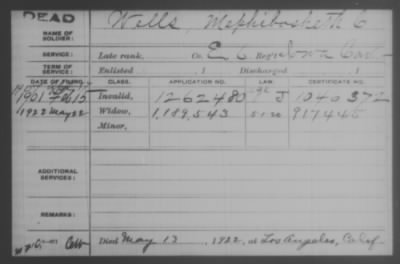 DEAD
NAME OF SOLDIER: Wells, Mephibosheth C
SERVICE: Late rank, Co. E, 6 Reg't Iowa Cav
TERM OF SERVICE: Enlisted , 1 Discharged , 1
DATE OF FILING. CLASS. APPLICATION NO. LAW. CERTIFICATE NO.
1901 Feb 15 Invalid, 1262480 J 1040372
1922 May 22 Widow, 1,189,543 917445
Minor,
ADDITIONAL SERVICES:
REMARKS:
Died May 13, 1922, at Los Angeles, Calif.